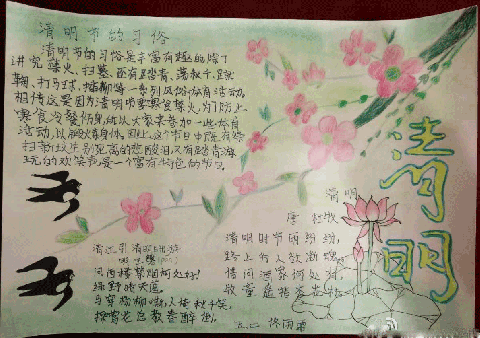 清明节的习俗
清明节的习俗是丰富有趣的，除了
讲究禁火、扫墓，还有踏青、荡秋千、蹴
鞠、打马球、插柳等一系列风俗体育活动。
相传这是因为清明节要寒食禁火，为了防止
寒食冷餐伤身，所以大家来参加一些体育
活动，以锻炼身体。因此，这个节日中既有祭
扫新坟生别死离的悲酸泪，又有踏青游
玩的欢笑声，是一个富有特色的节日。
清明
清明
唐 杜牧
清明时节雨纷纷，
路上行人欲断魂
借问酒家何处
牧童遥指杏花
清江引 清明日出游
问西楼禁烟何处好？
绿野晴天道
马穿杨柳嘶，人倚秋千笑，
探莺花总教春醉倒。